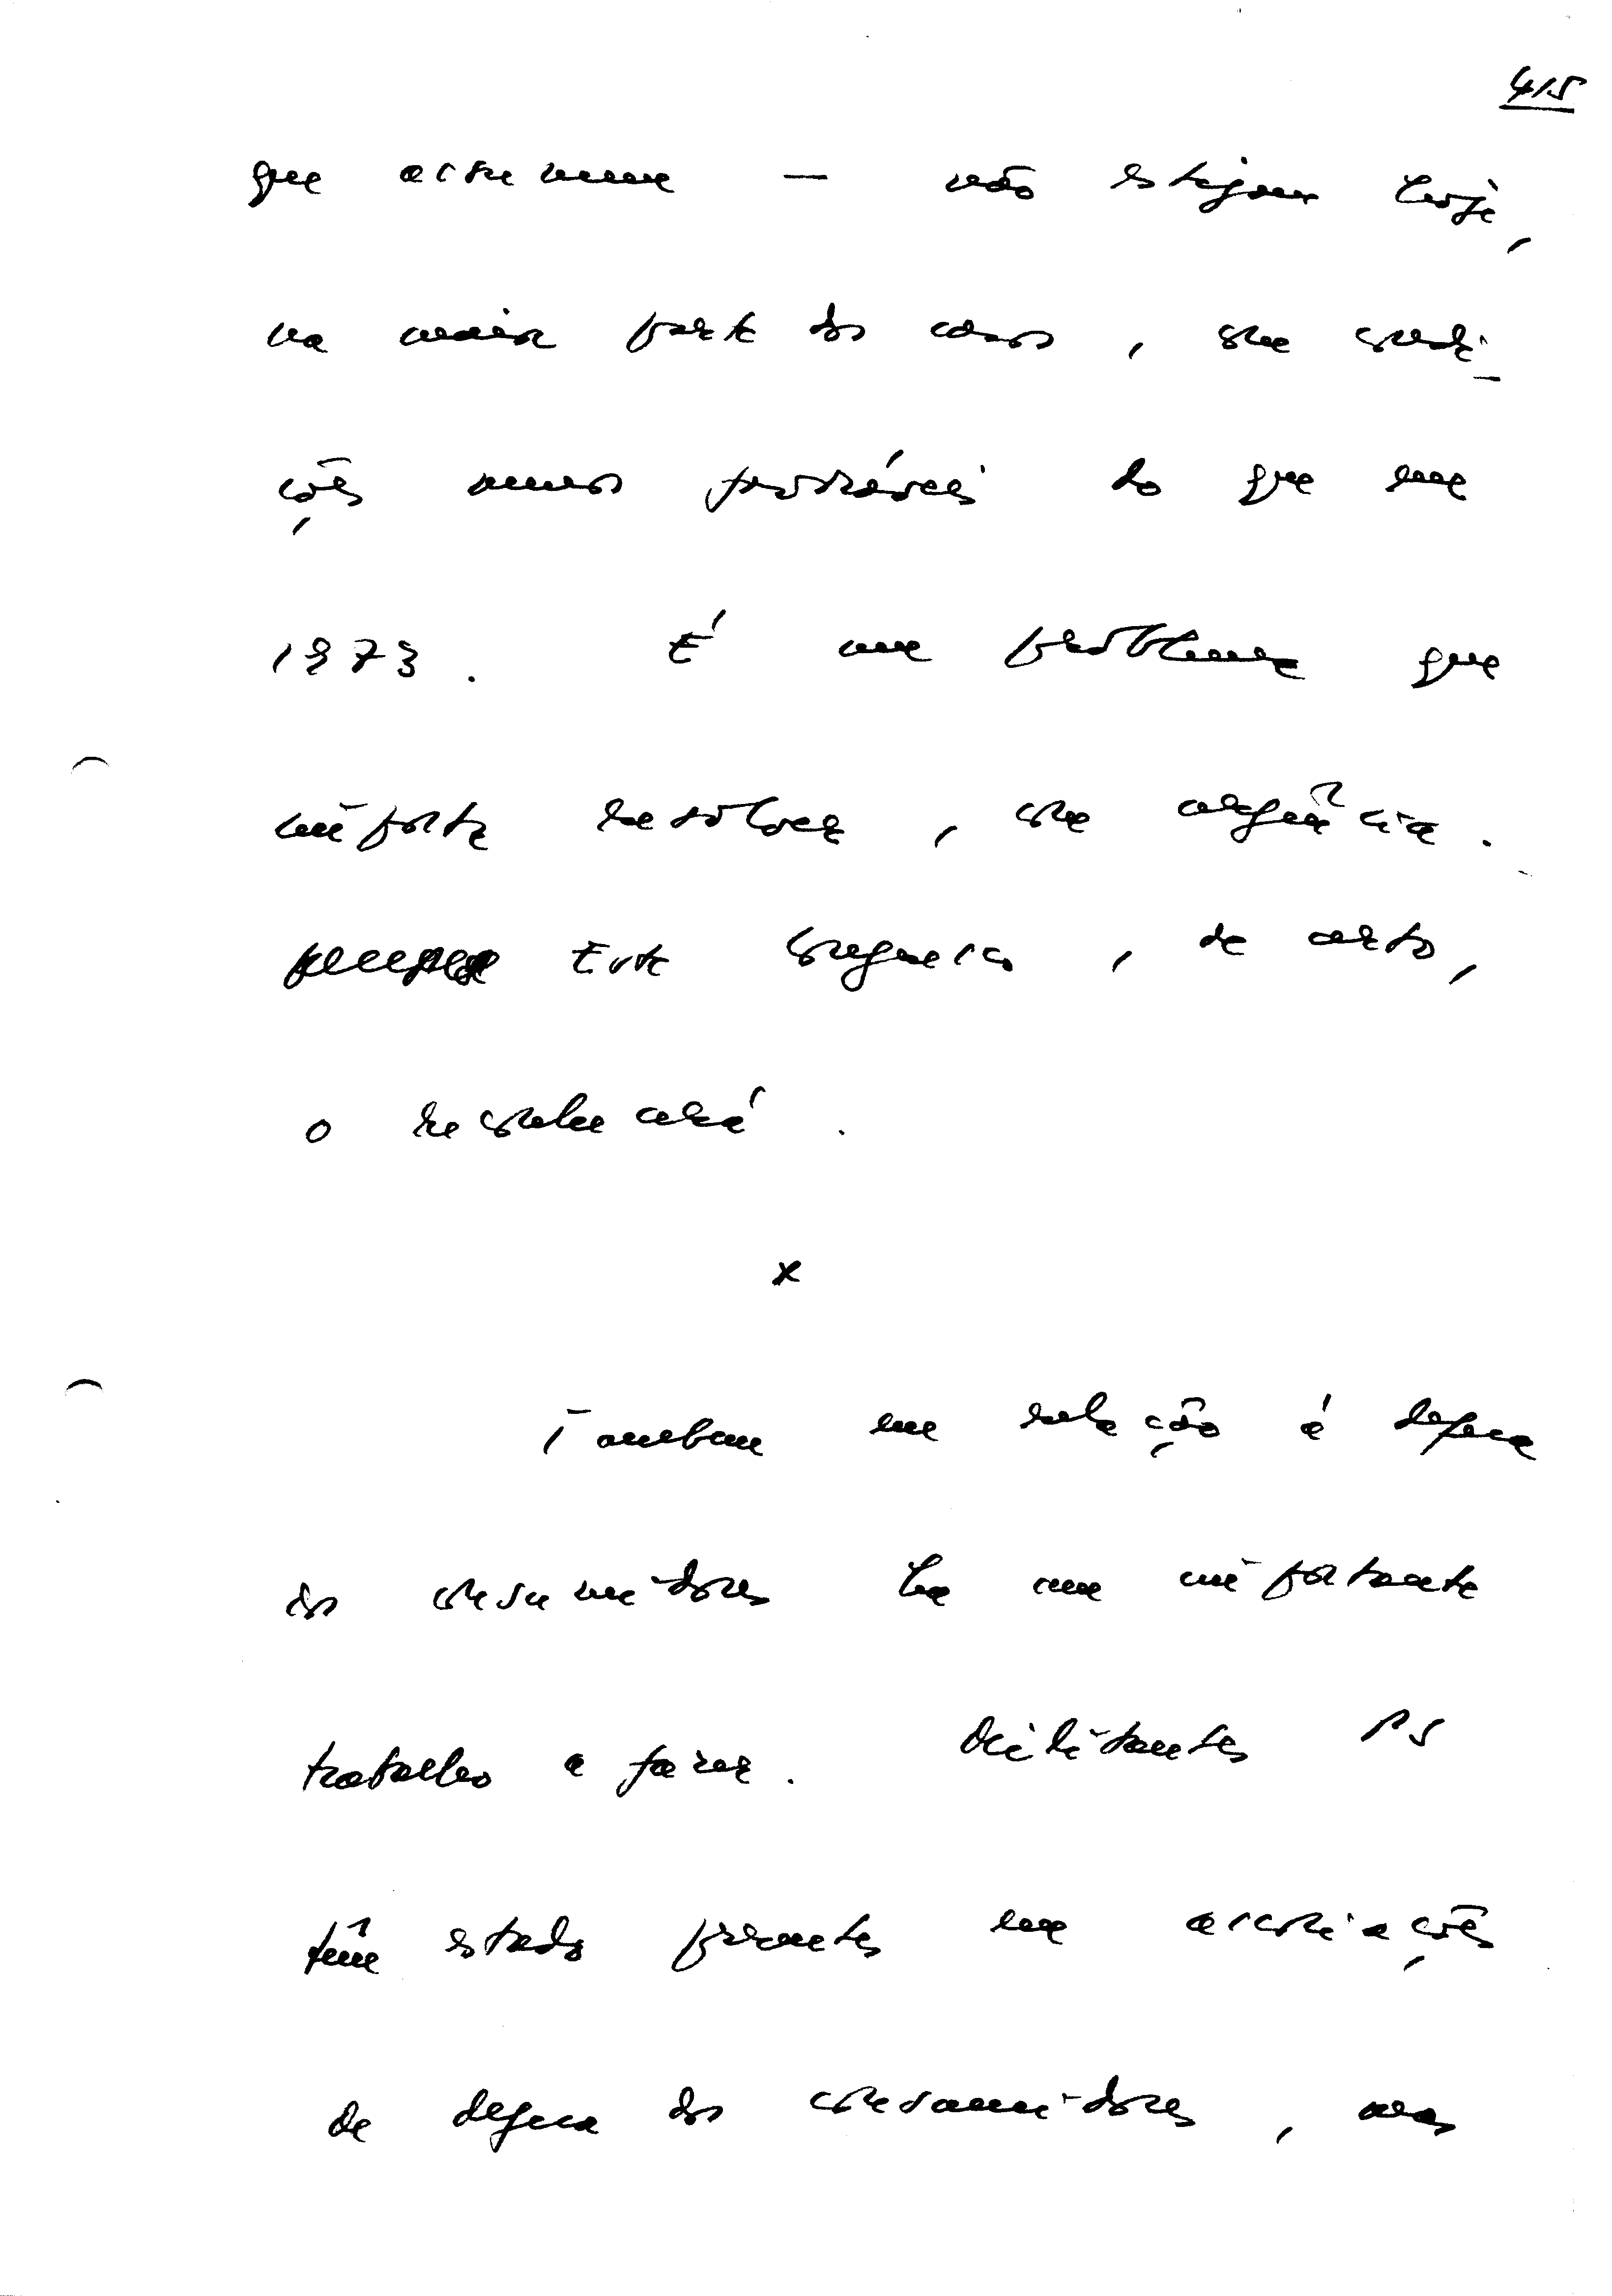 415
que assumem — não estejam hoje,
na maior parte dos casos, em condi-
ções menos favoráveis do que em
1973. É um problema que
importa resolver, com urgência.
Este Congresso, de certo,
o reconhecerá.
x
Também em relação á defesa
dos consumidores há um importante
trabalho a fazer. Militantes PS
têm estado presentes em associações
de defesa dos consumidores, mas